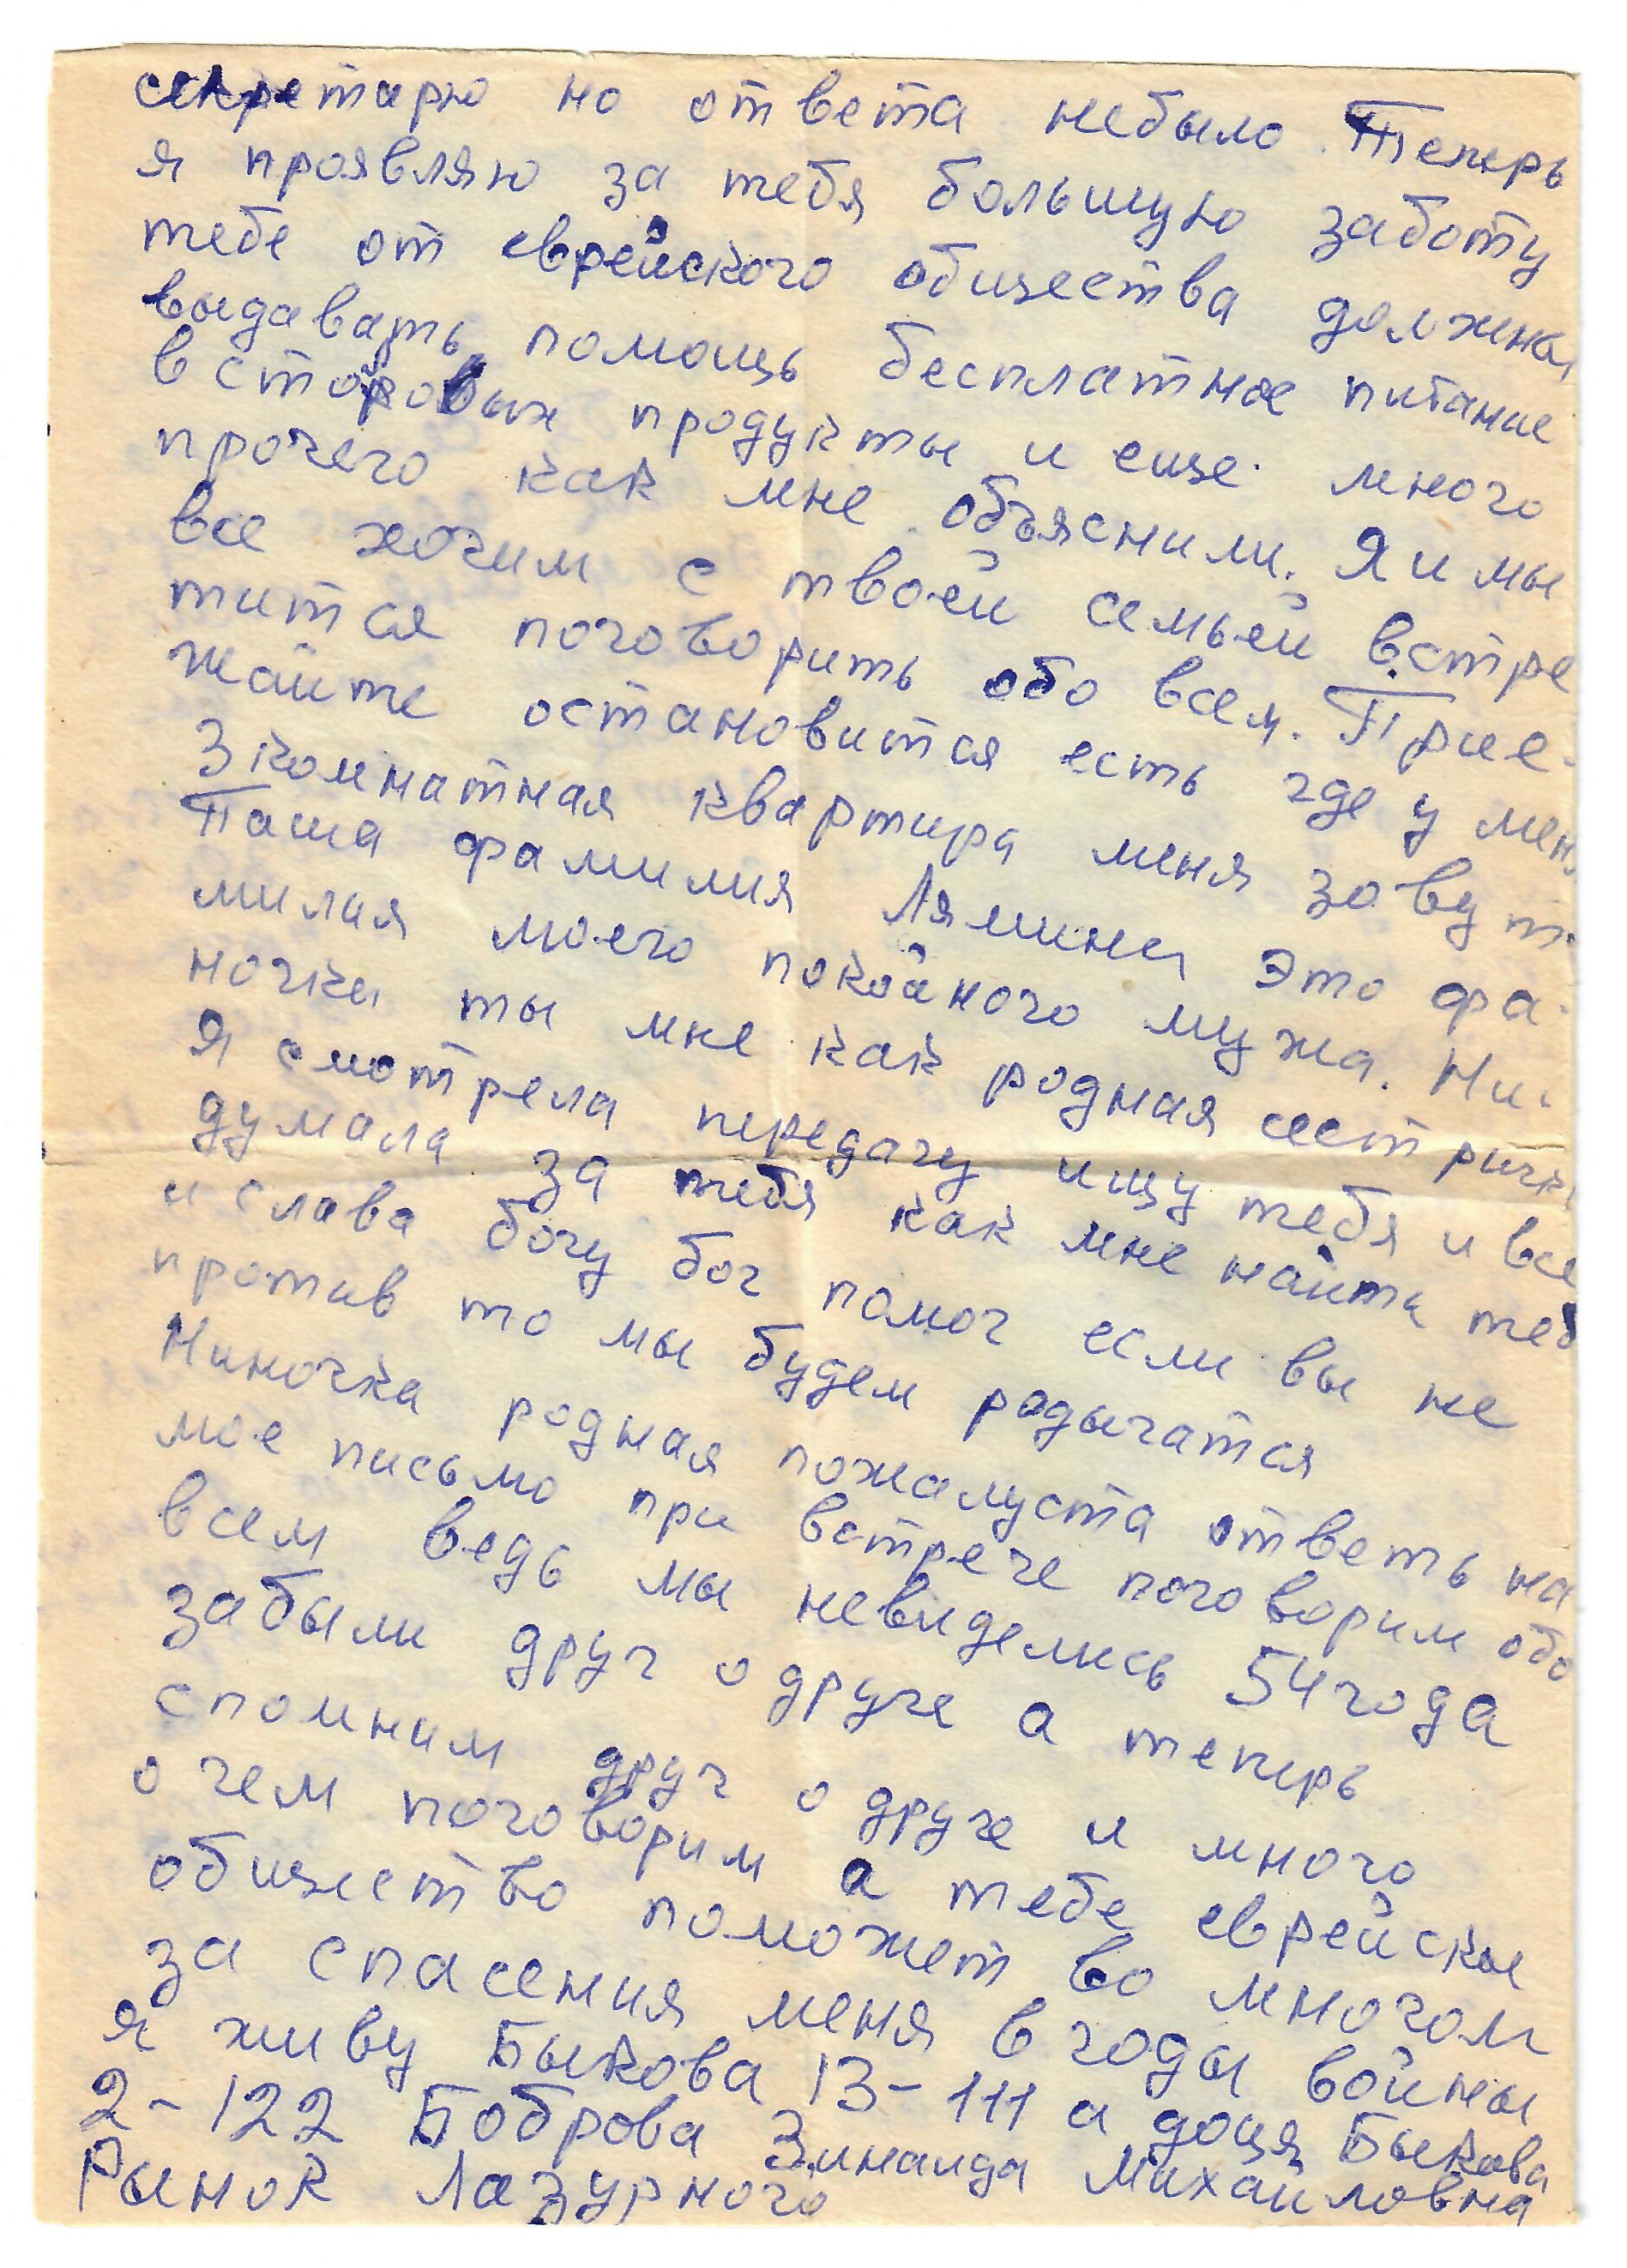 секретарю но ответа небыло. Теперь
я проявляю за тебя большую заботу
тебе от еврейского общества должна
выдавать помощь бесплатное питание
в сторовых продукты и еще много
прочего как мне объяснили. Я и мы
все хочим с твоей семьей встре
тится поговорить обо всем. Прие-
жайте остановится есть где у меня
3 комнатная квартира меня зовут
Паша фамилия Лямина это фа-
милия моего покойного мужа. Ни-
ночка ты мне как родная сестричка
Я смотрела передачу ищу тебя и все
думала за тебя как мне найти теб
и слава богу бог помог если вы не
против то мы будем родычатся
Ниночка родная пожалуста ответь на
мое письмо при встрече поговорим обо
всем ведь мы невиделись 54 года
забыли друг о друге а теперь
спомним друг о друге и много
о чем поговорим а тебе еврейское
общество поможет во многом
за спасения меня в годы войны
я живу Быкова 13-111 а доця Быкова
2-122 Боброва Зинаида Михайловна
Рынок Лазурного